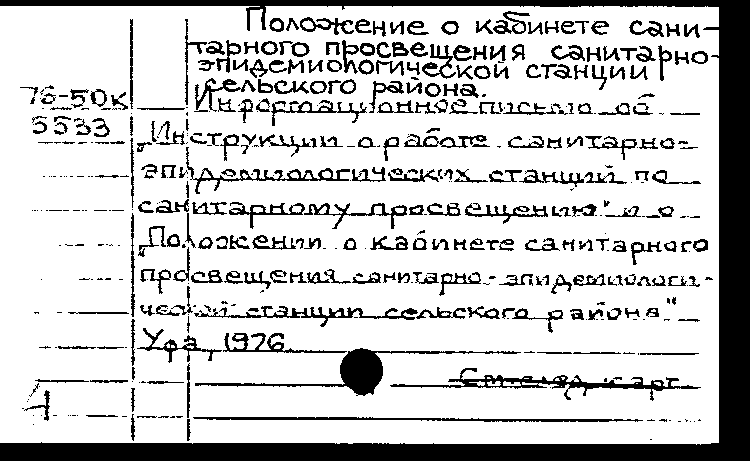 Положение о кабинете сани-
тарного просвещения санитарно-
эпидемиологической станции
сельского района.
76-50к Информационное письмо об
5533 „Инструкции о работе санитарно-
эпидемиологических станций по
санитарному просвещению" и о
„Положении о кабинете санитарного
просвещения санитарно-эпидемиологи-
ческой станции сельского района"
Уфа, 1976
См. след. карт.
4